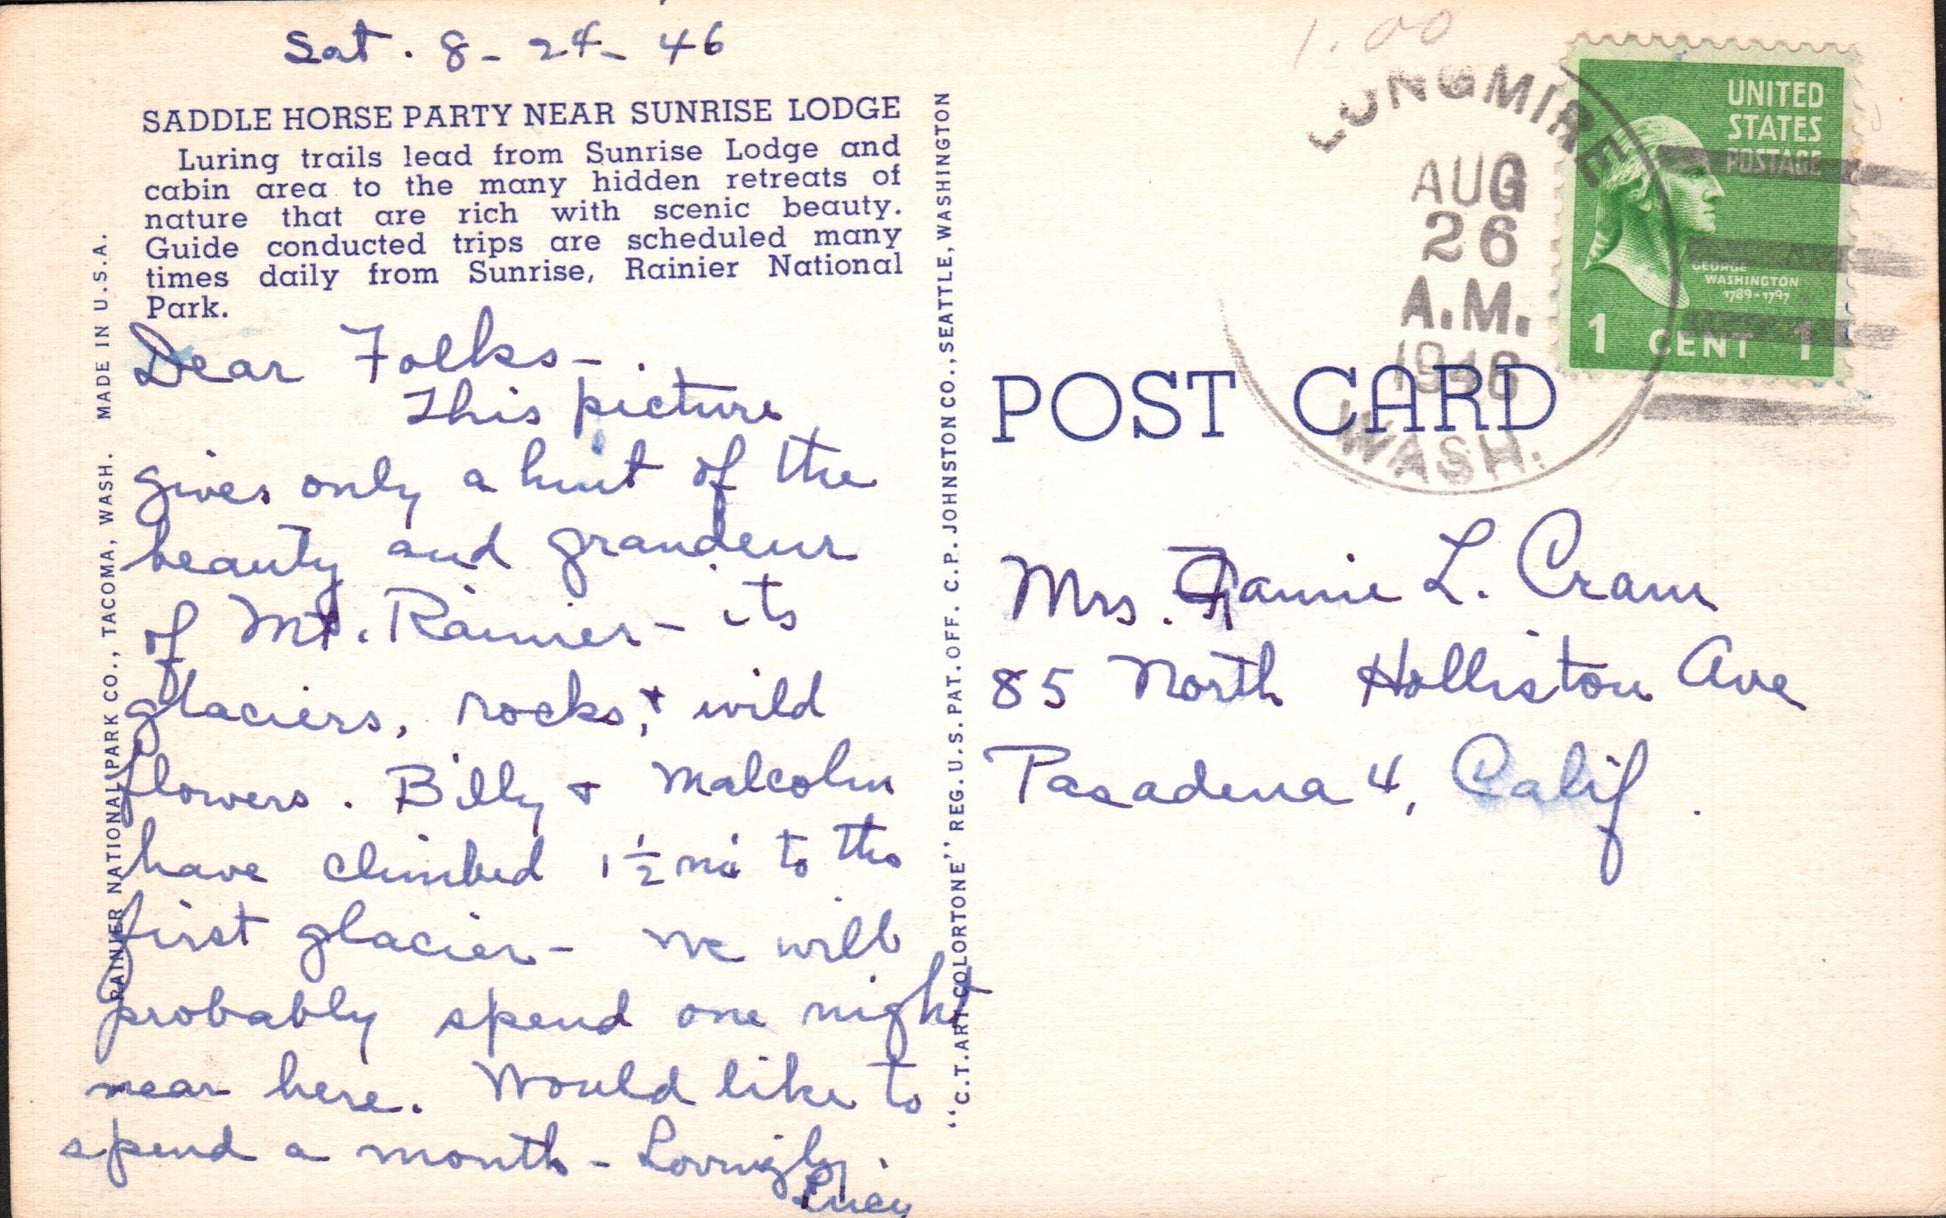 Sat. 8-24-46
SADDLE HORSE PARTY NEAR SUNRISE LODGE
Luring trails lead from Sunrise Lodge and
cabin area to the many hidden retreats of
nature that are rich with scenic beauty.
Guide conducted trips are scheduled many
times daily from Sunrise, Rainier National
Park.
Dear Folks-
This picture
gives only a hint of the
beauty and grandeur
of Mt. Rainier - its
glaciers, rocks, + wild
flowers. Billy + Malcolm
have climbed 1 1/2 mi to the
first glacier - we will
probably spend one night
near here. Would like to
spend a month - Lovingly,
Lucy
RAINIER NATIONAL PARK CO., TACOMA, WASH. MADE IN U.S.A.
"C.T. ART-COLORTONE" REG. U.S. PAT. OFF. C.P. JOHNSTON CO., SEATTLE, WASHINGTON
1.00
LONGMIRE
AUG
26
A.M.
1946
WASH.
UNITED
STATES
POSTAGE
GEORGE
WASHINGTON
1789-1797
1 CENT 1
POST CARD
Mrs. Fannie L. Cram
85 North Holliston Ave
Pasadena 4, Calif.